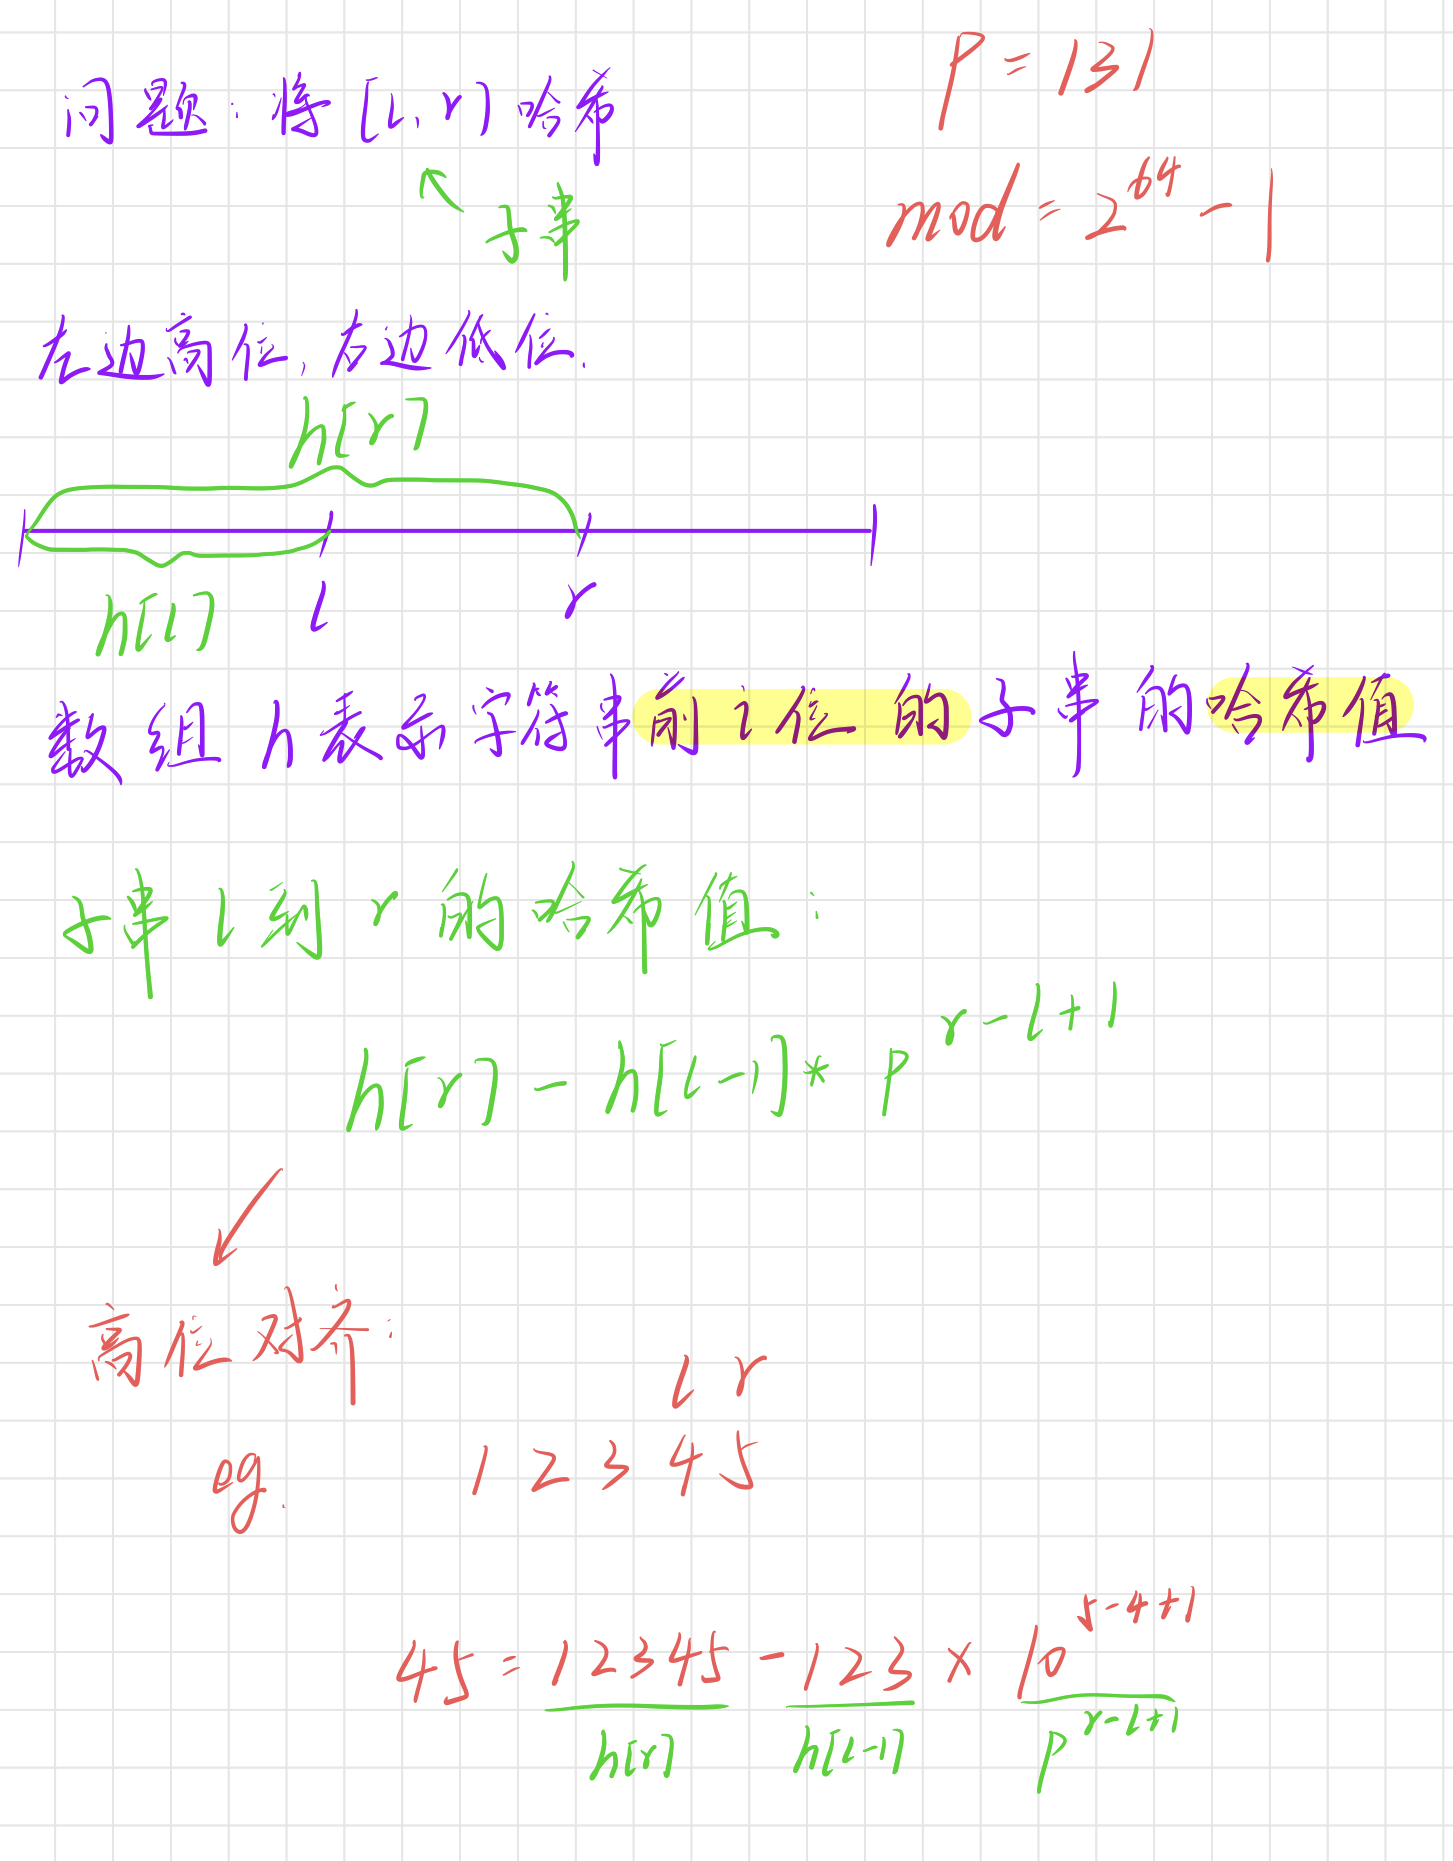 P = 131
问题：将[l, r]哈希
mod = 2^64 - 1
子串
左边高位，右边低位.
h[r]
h[l] l r
数组h表示字符串前i位的子串的哈希值
子串l到r的哈希值：
h[r] - h[l-1] * P^r-l+1
高位对齐：
l r
eg. 1 2 3 4 5
45 = 12345 - 123 × 10^5-4+1
h[r] h[l-1] P^r-l+1